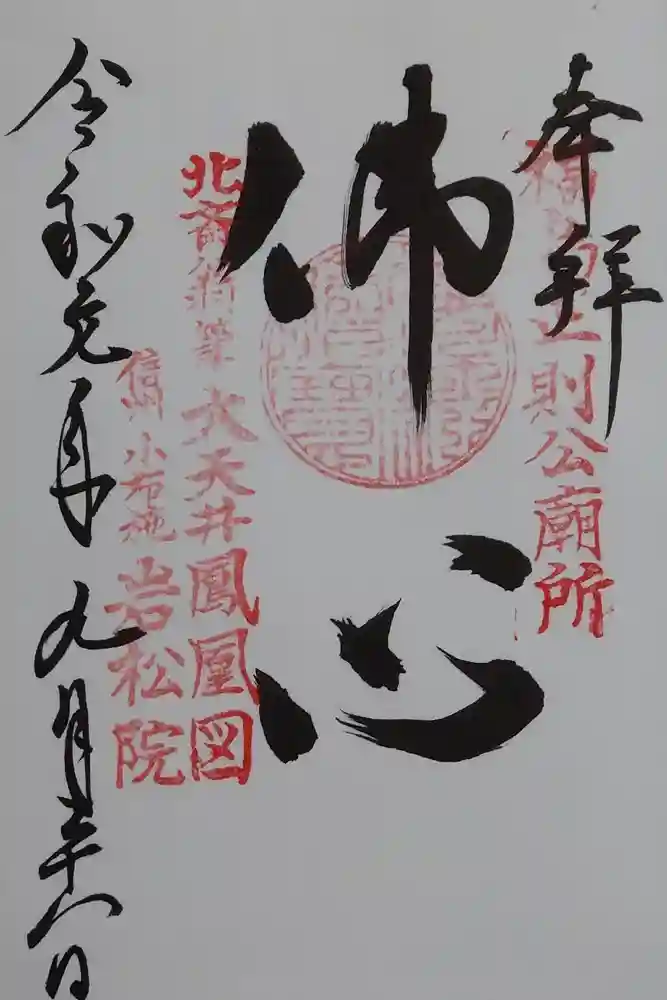 奉拝
福島正則公廟所
佛心
北斎翁筆 大天井鳳凰図
信州 小布施 岩松院
令和元年九月二十八日